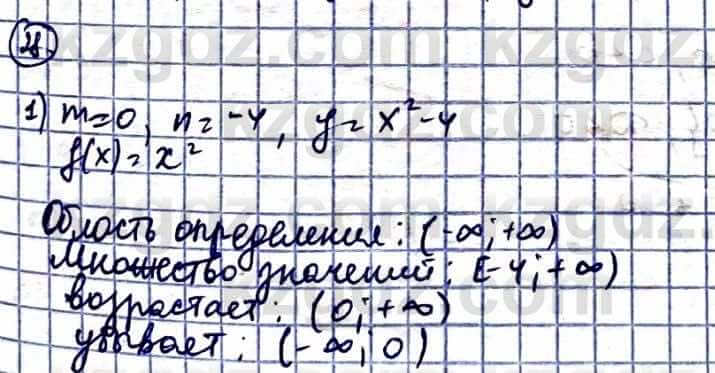 28.
1) m=0, n=-4, y=x²-4
f(x)=x²
Область определения: (-∞;+∞)
Множество значений: [-4;+∞)
возрастает: (0;+∞)
убывает: (-∞;0)